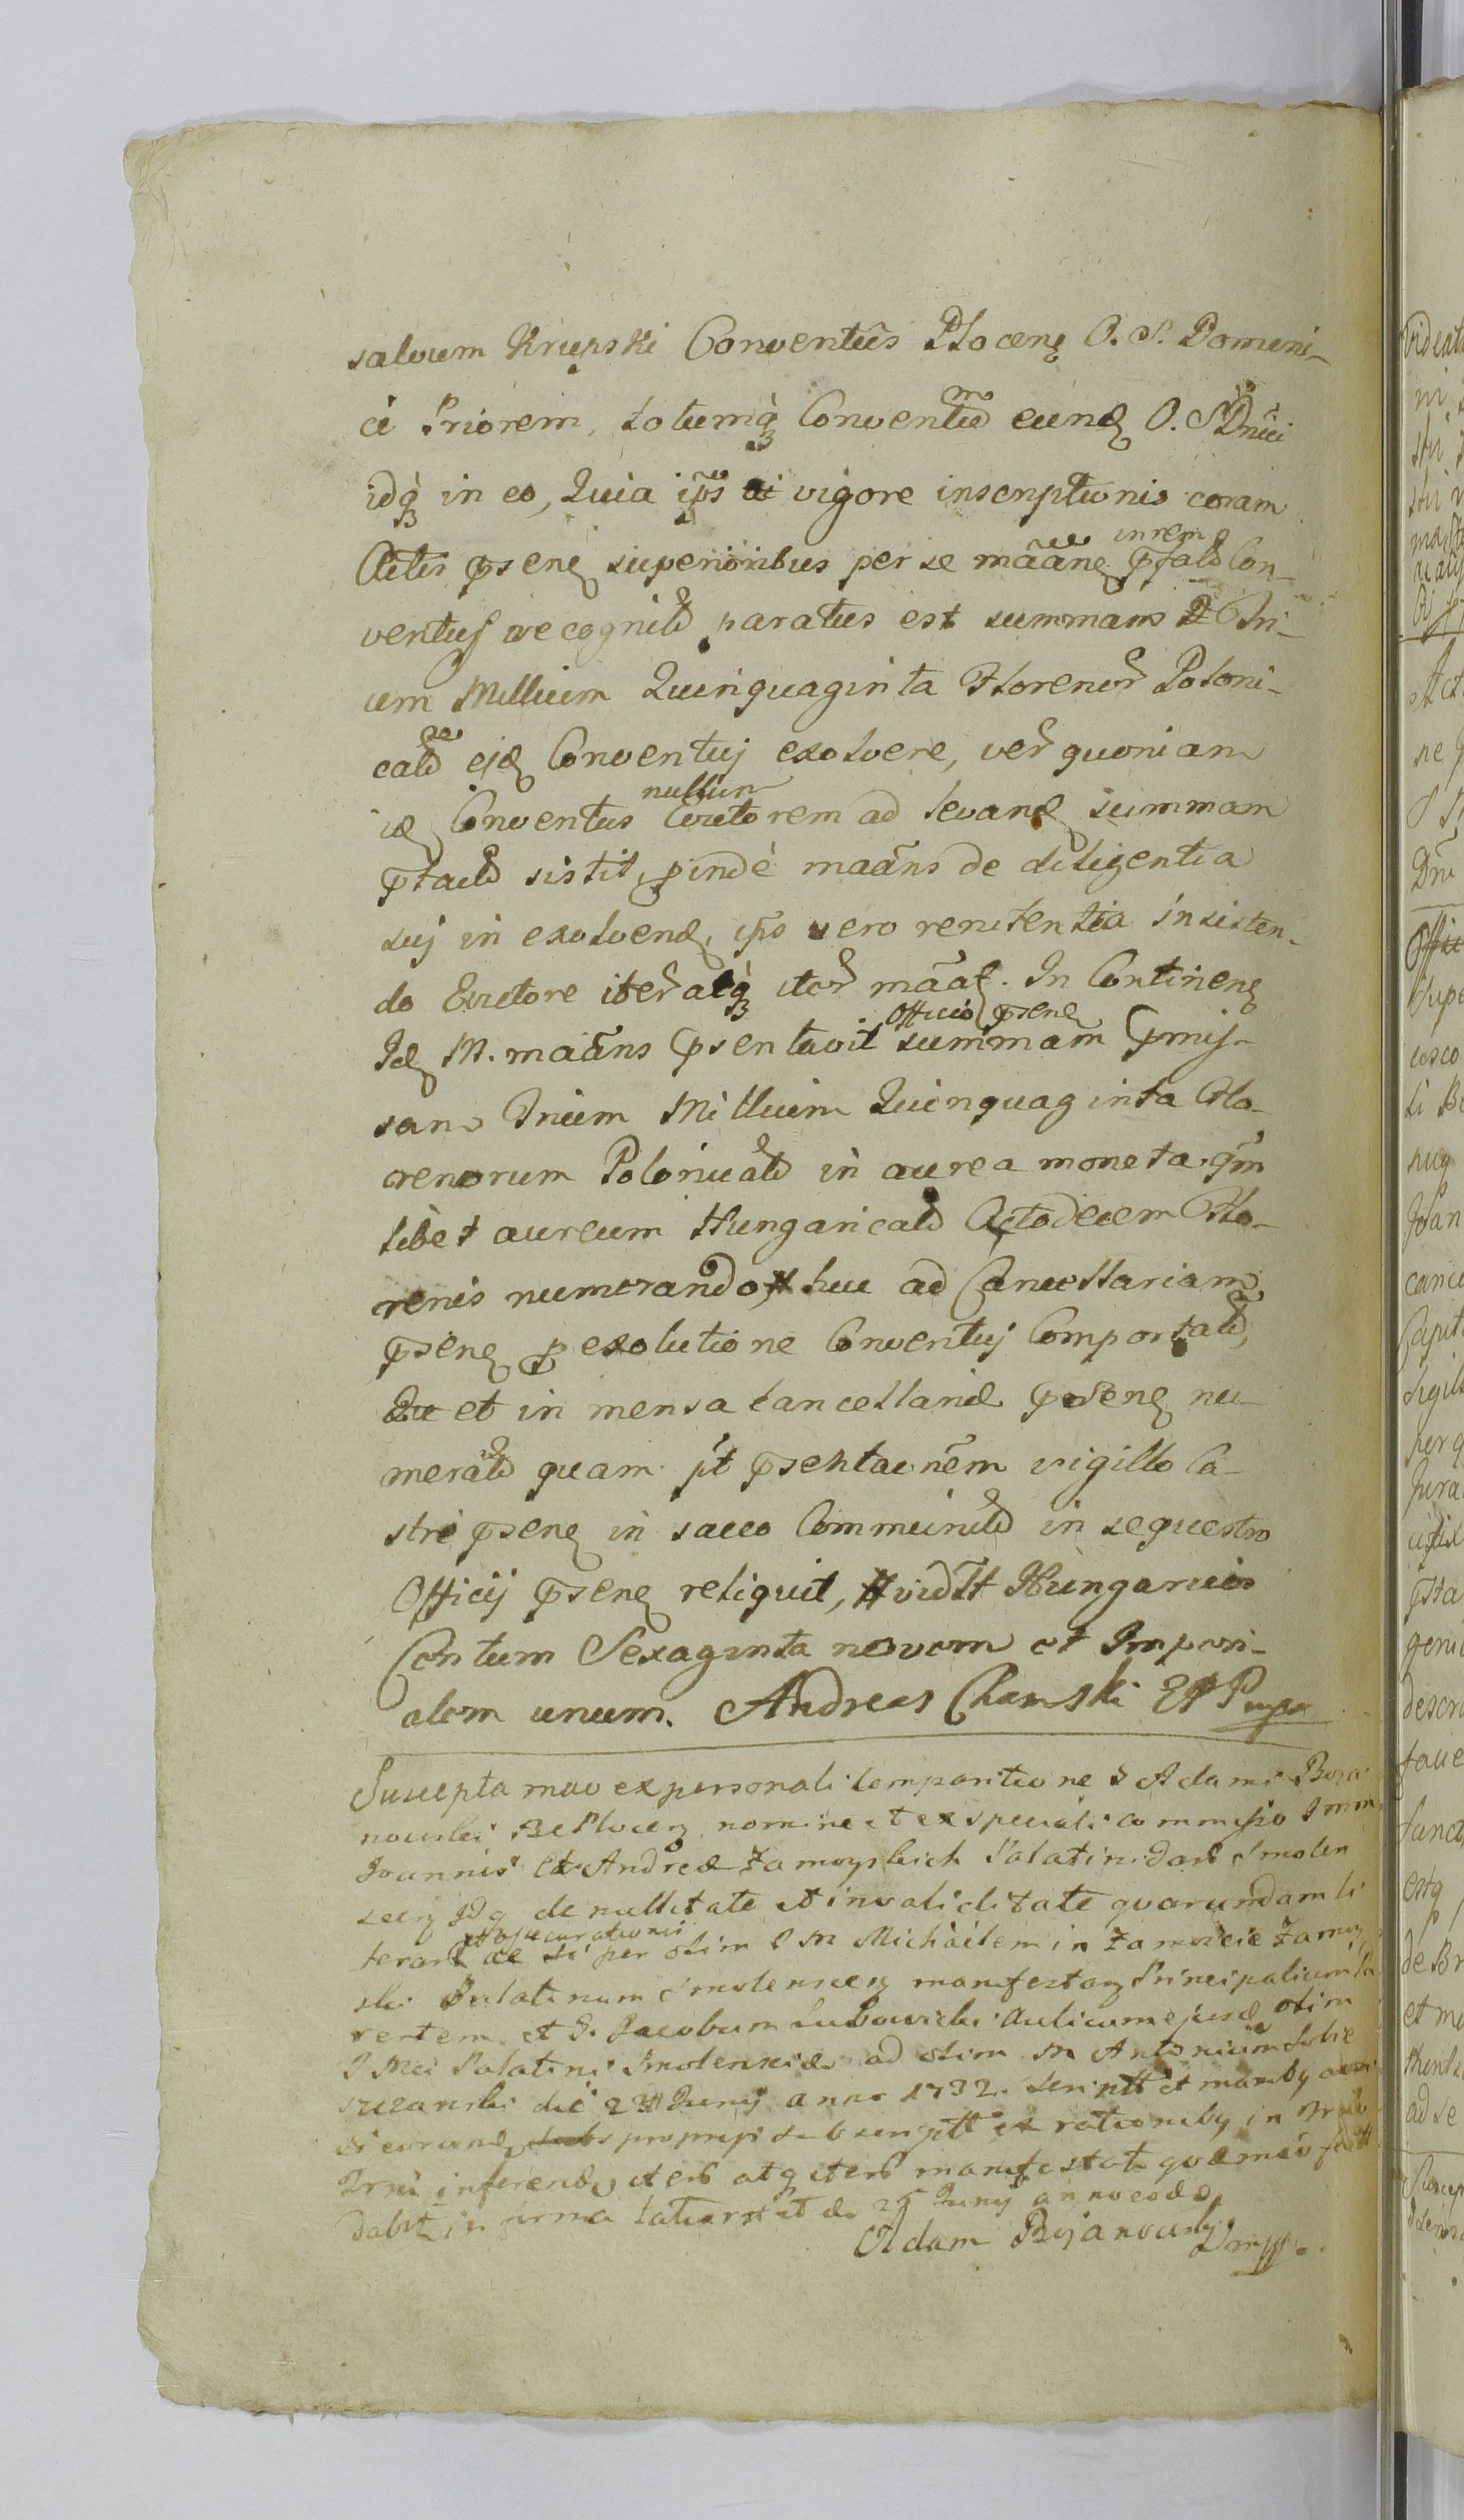 salvum Krupski Conventûs Plocen O. S. Domini-
ci Priorem, totumq Conventu eund O. S. Dnici
idq in eo, Quia ips vigore inscriptionis coram
Actis psen superioribus per se māāne in rem pfat Con-
ventus recognit paratus est summam Tri-
um Millium Quinquaginta Florenor Poloni-
cal ejd Conventuj exolvere, ver quoniam
id Conventus nullum Ductorem ad levand summam
ptact sistit, pindè maāns de diligentia
suj in exolvend, ips vero renitentia insisten-
do iter atq iter māāt. In Continen
Id M. maāns psentavit Officio psen summam pmis-
sam Trium Millium Quinquaginta Flo-
renorum Polonical in aurea moneta qm
libet aureum Hungarical Octodecem Flo-
renis numerando, huc ad Cancellariam
psen p exolutione Conventuj Comportat,
et in mensa Cancellariæ psen nu-
merat quam pt psentaonem sigillo Ca-
stri psen in sacco Communit in sequestro
Officij psen reliquit, vidlt Hungaricos
Centum Sexaginta novem et Imperi-
alem unum. Andreas Chamski
Suscepta mao ex personali Comparitione G Adami Boja
nowski nomine et ex speciali commisso Imm
Joannis et Andreæ Zamoyskich Palatinidar Smolen
scen Idq de nullitate et invaliditate quarumdam li
terar assecurationis ac per olim I M Michaelem in Zamoscie Zamoy
ski Palatinum Smolenscen manifestan Principalium Pa
rentem et G. Jacobum Lubowicki Aulicum ejusd olim
I Mci Palatini Smolenscie ad olim M Antonium
die 23 Junij anno 1732. script et manib
eorund proprijs subscript ex rationib in
inferend iter atq iter manifestat
dabit in forma 25 Junij anno eod
Adam Bojanowski